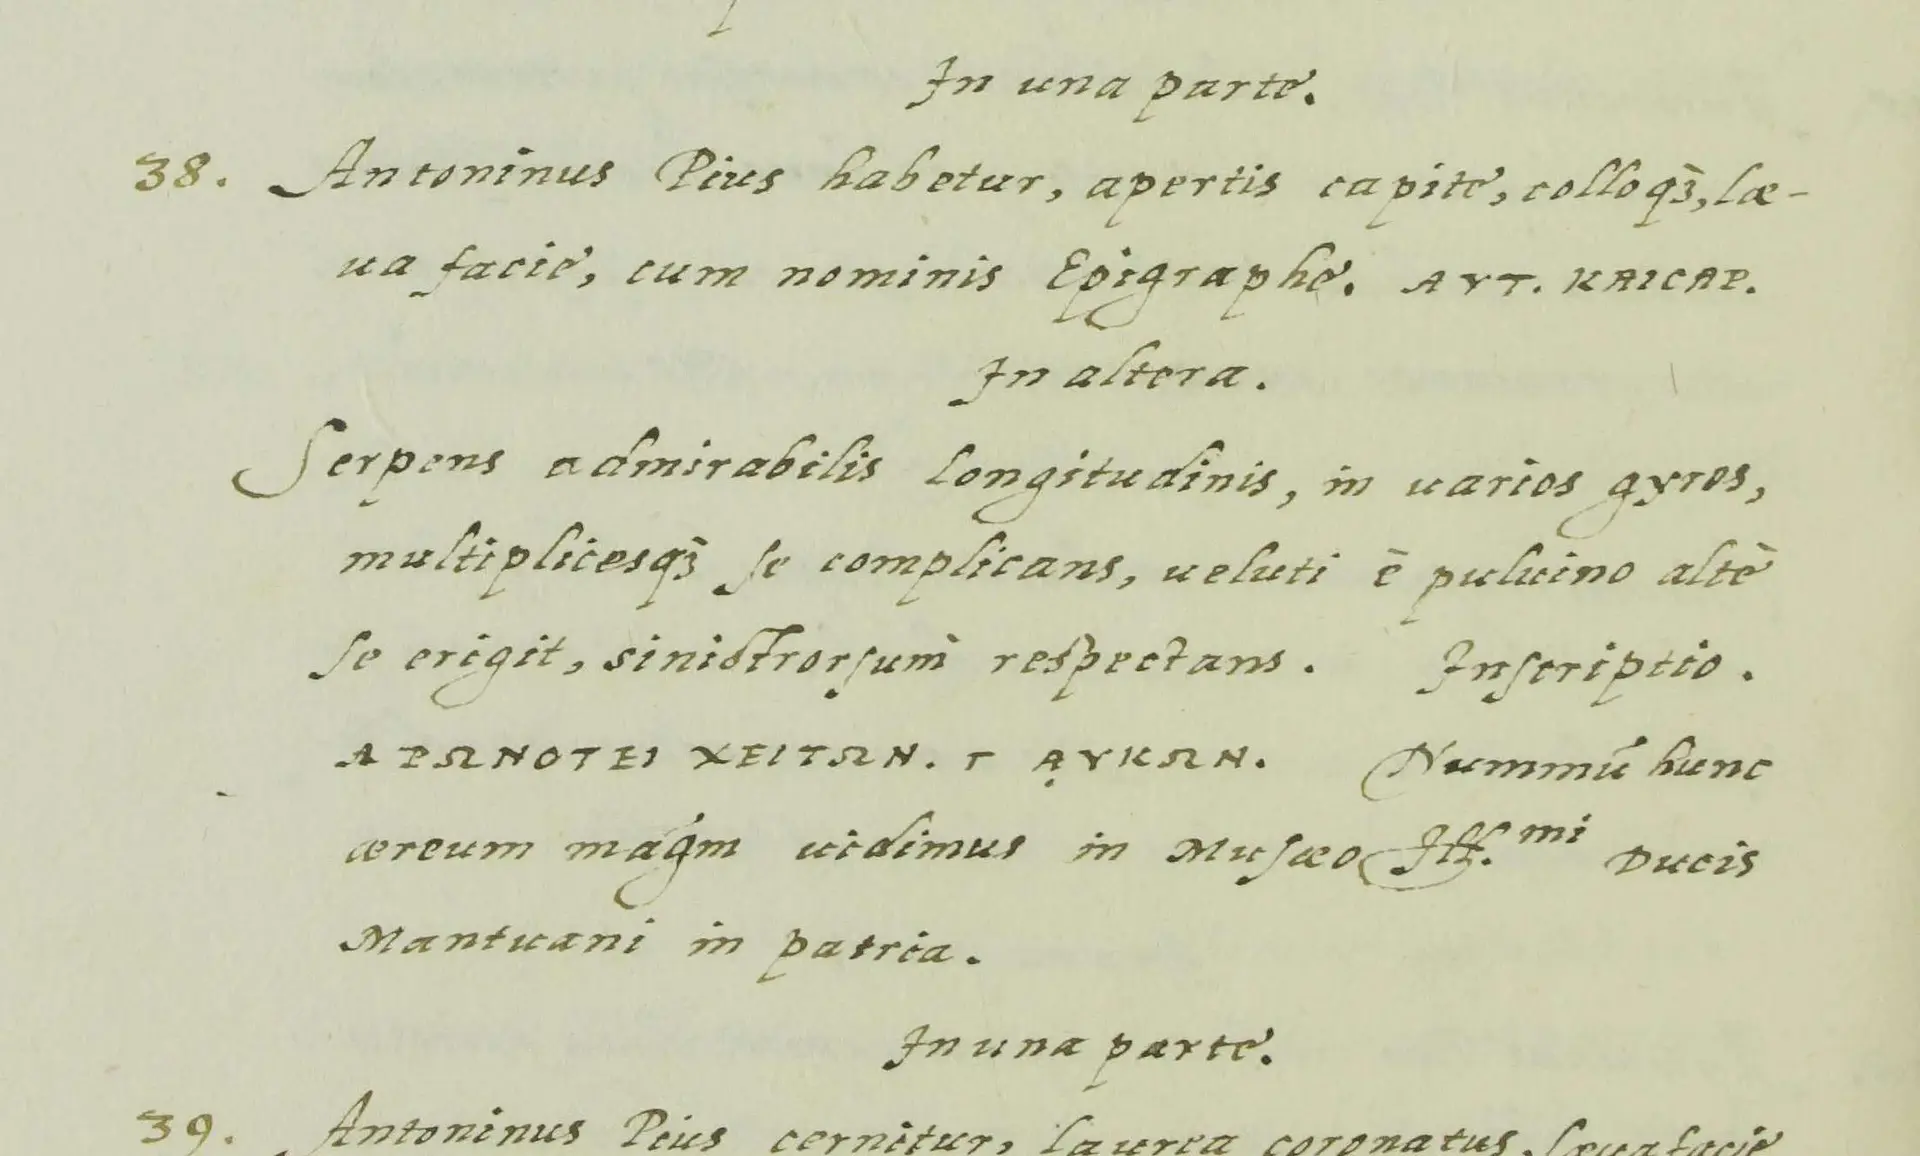 In una parte.
38. Antoninus Pius habetur, apertis capite, colloq3, læ-
ua facie, cum nominis Epigraphe. ΑΥΤ. ΚΑΙϹΑΡ.
In altera.
Serpens admirabilis longitudinis, in uarios gyros,
multiplicesq3 se complicans, ueluti è puluino altè
se erigit, sinistrorsum respectans. Inscriptio.
ΑΡΩΝΟΤΕΙ ΧΕΙΤΩΝ. Γ ΑΥΚΩΝ. Nummũ hunc
æreum magm uidimus in Musæo Ill.mi Ducis
Mantuani in patria.
In una parte.
39. Antoninus Pius cernitur, laurea coronatus, læua facie